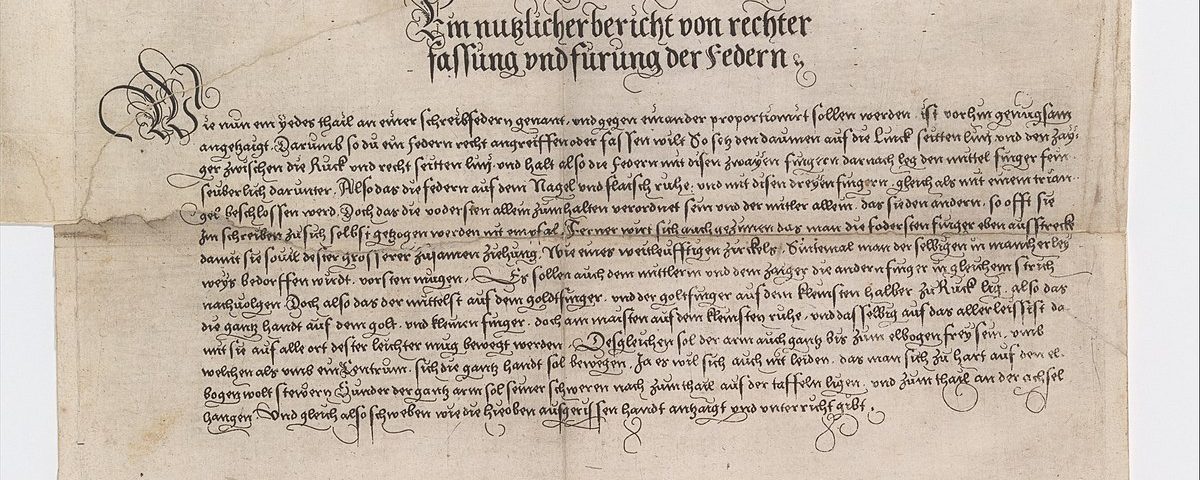 Ein nutzlicher bericht von rechter
fassung vnd furung der Federn
Wie nun ein yedes thail an einer schreibfedern genant, vnd gegen einander proportionirt sollen werden, ist vorhin genungsam
angehaigt. Darumb so du ein federn recht angreiffen oder fassen wilt So setz den daumen auf die Linck seitten linij vnd den zay⸗
ger zwischen die Ruck vnd recht seitten linij, vnd halt also die federn mit disen zwayen fingern darnach leg den mittel finger fein
seuberlich darunter. Also das die federn auf dem Nagel vnd flaisch ruhe, vnd mit disen dreyen fingern, gleich als mit einem trian⸗
gel beschlossen werd. Doch das die vodersten allein zum halten verordnet sein vnd der mitler allein, das sie den andern, so offt sie
Im schreiben zu sich selbst gezogen werden mit empfal. Ferner wirt sich auch gezimen das man die fodersten finger eben ausstreck
damit sie souil dester grosserer zusamen ziehung, Wie eines weitleufftigen zirckels, Sintemal man der selbigen in mancherley
weys bedorffen wirdt, vorsten mugen. Es sollen auch dem mittlern vnd dem zaiger die andern finger in gleichem strich
nachuolgen. Doch also das der mittelst auf dem goldtfinger, vnd der goltfinger auf dem kleinsten halber zu Ruck lig, also das
die gantz handt auf dem golt, vnd kleinen finger, doch am maisten auf dem kleinsten ruhe, vnd dasselbig auf das allerleissist da
mit sie auf alle ort dester leichter mug bewegt werden. Desgleichen sol der arm auch gantz bis zum elbogen frey sein, vmb
welchen als vmb ein Zentrum, sich die gantz handt sol bewegen, Ja es wil sich auch nit leiden, das man sich zu hart auf den el⸗
bogen wolt stewern Sunder der gantz arm sol seiner schweren nach zum thail auf der taffeln ligen, vnd zum thail an der achsel
hangen. Vnd gleich also schweben wie die hieoben ausgerissen handt anhaigt vnd vnterricht gibt.